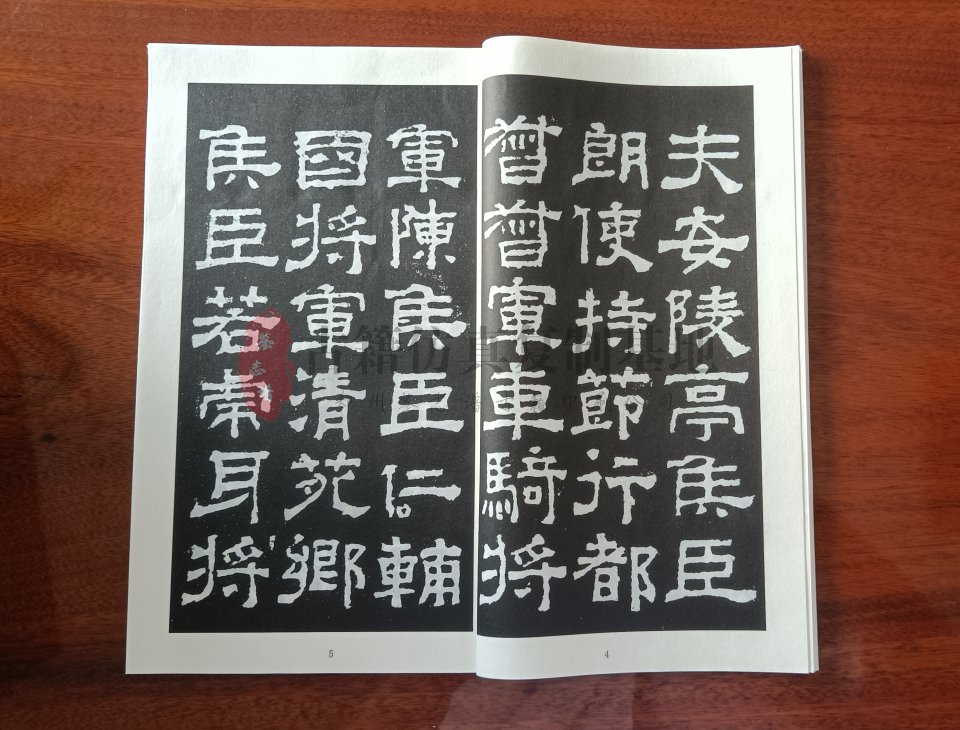 夫安陵亭侯臣
朗使持節行都
督督軍車騎將
4
軍陳侯臣仁輔
國將軍清苑鄉
侯臣若虎牙將
5
古籍仿真复制基地